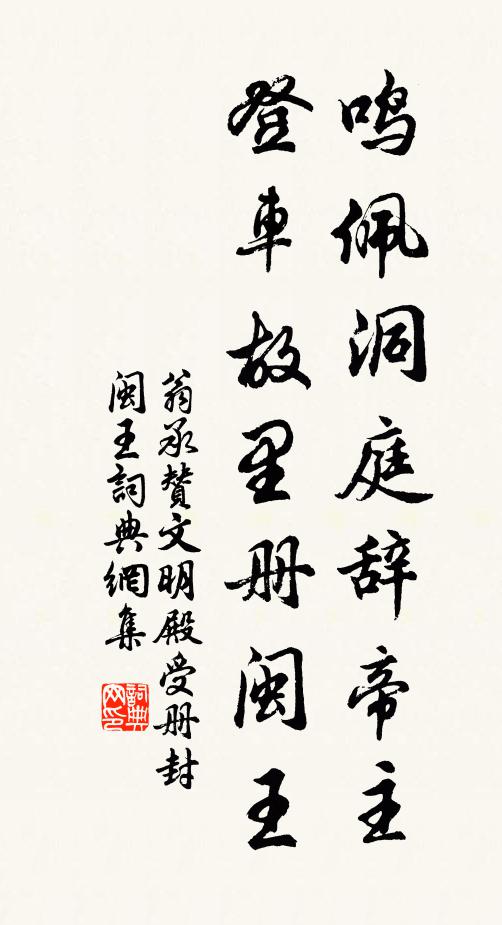 鸣佩洞庭辞帝主
登車故里册闽王
翁承赞文明殿受册封
闽王詞典網集
詞典
网印